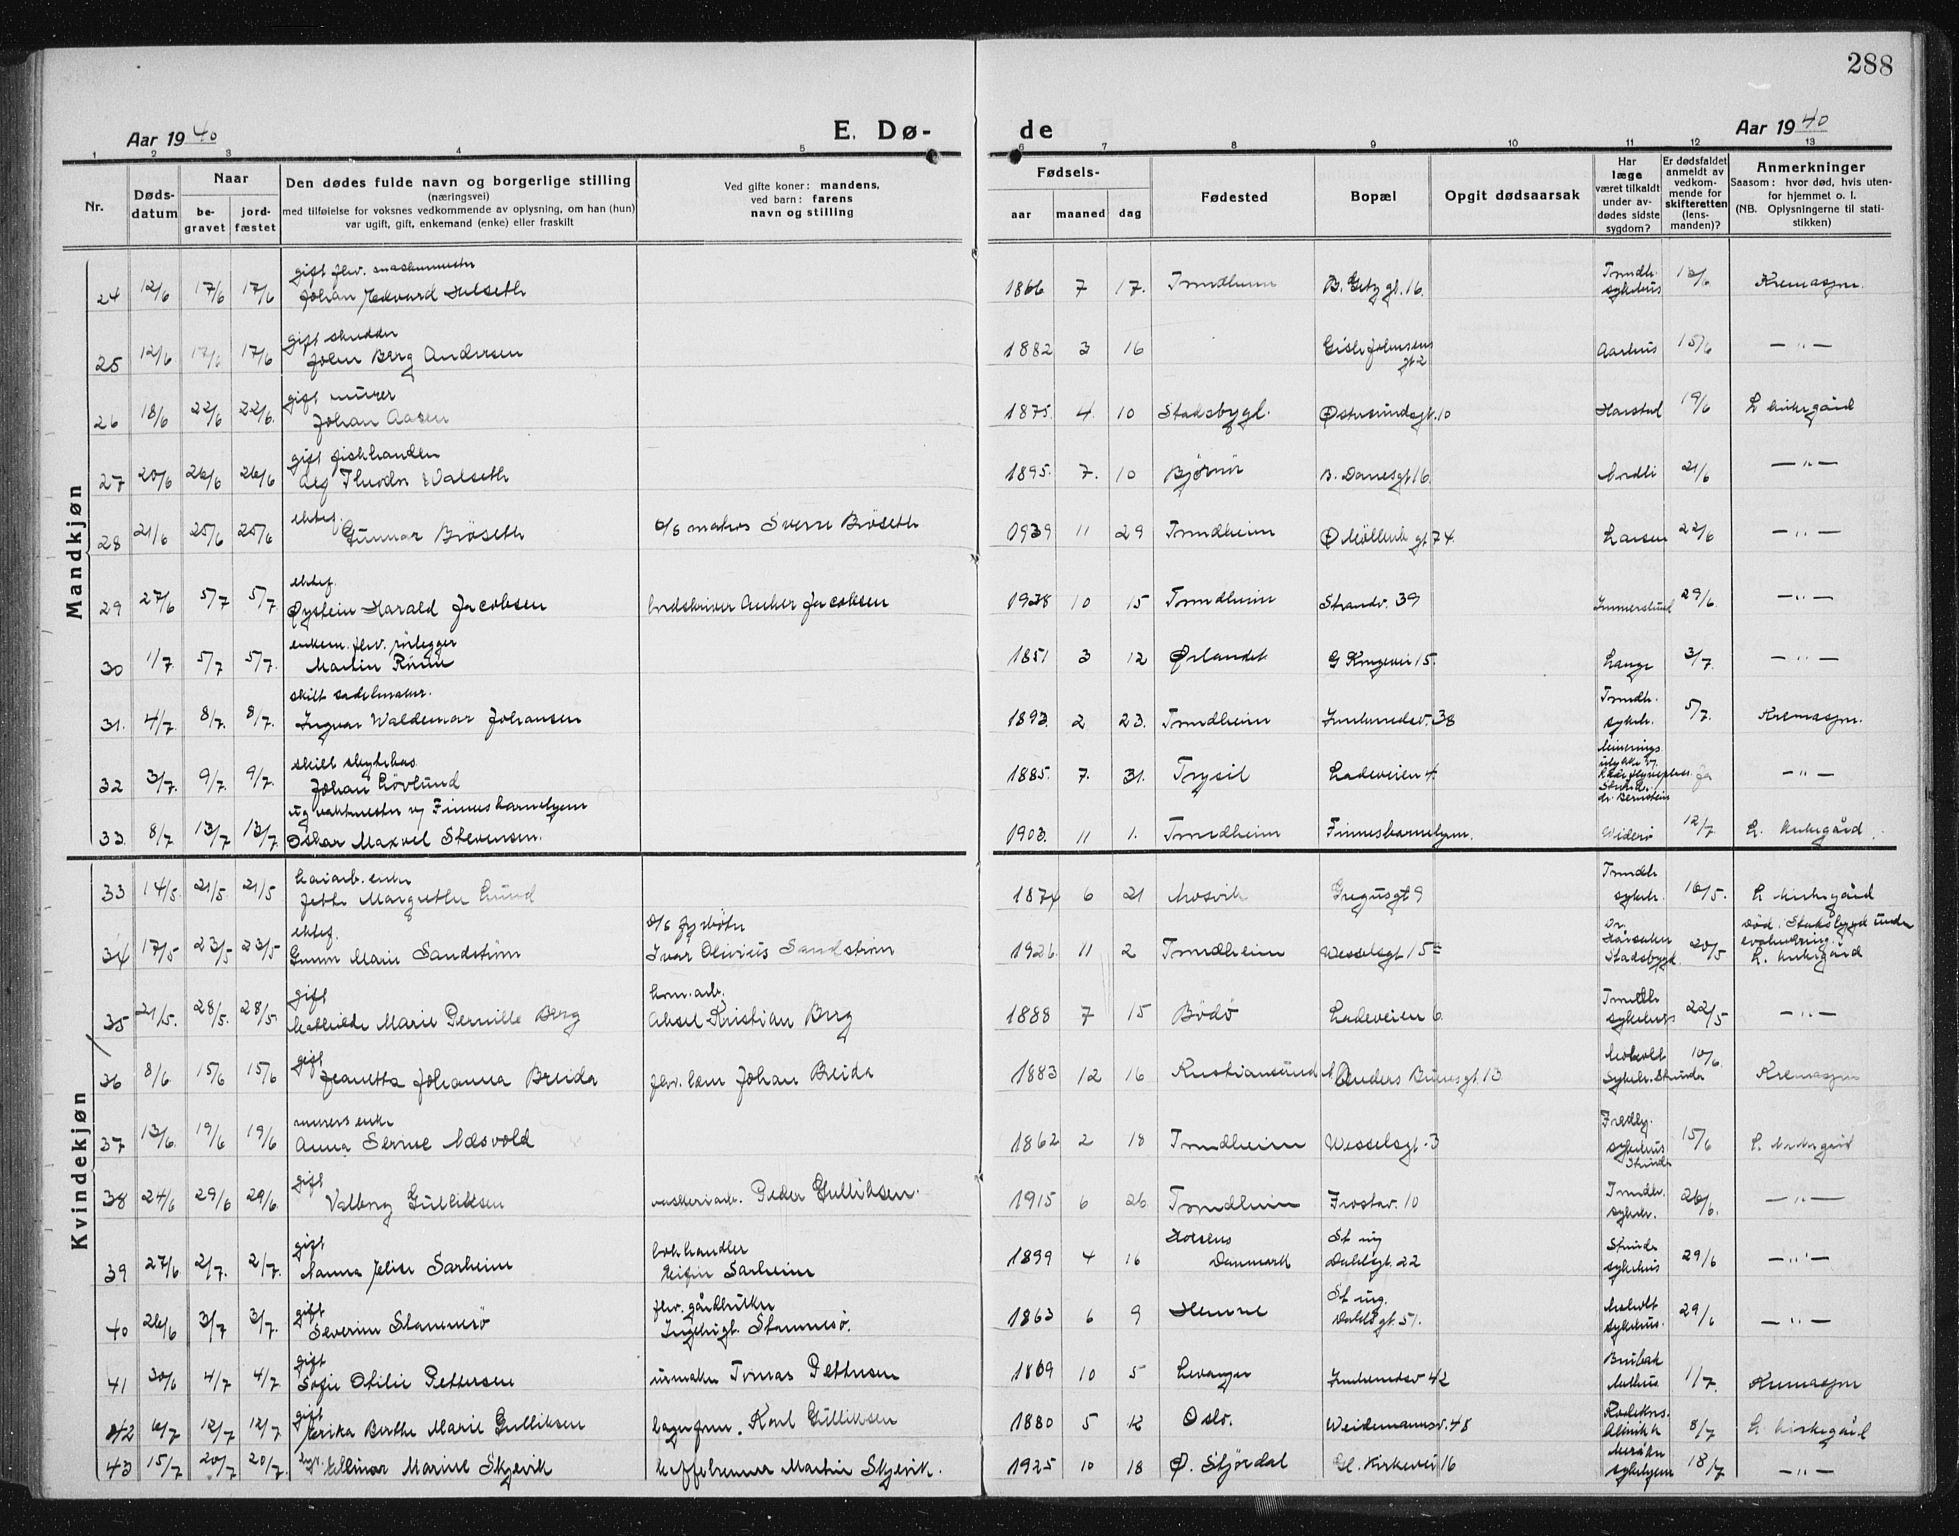 288
Aar 1940
E. Dø-
de
Aar 1940
1 2 3 4 5 6 7 8 9 10 11 12 13
Nr.
Døds-
datum
Naar
be-
gravet
jord-
fæstet
Den dødes fulde navn og borgerlige stilling
(næringsvei)
med tilføielse for voksnes vedkommende av oplysning, om han (hun)
var ugift, gift, enkemand (enke) eller fraskilt
Ved gifte koner: mandens,
ved barn: farens
navn og stilling
Fødsels-
aar maaned dag
Fødested
Bopæl
Opgit dødsaarsak
Har
læge
været tilkaldt
under av-
dødes sidste
sygdom?
Er dødsfaldet
anmeldt av
vedkom-
mende for
skifteretten
(lens-
manden)?
Anmerkninger
Saasom: hvor død, hvis uten-
for hjemmet o. l.
(NB. Oplysningerne til stati-
stikken)
Mandkjøn
gift fhv. maskinmester
24 12/6 17/6 17/6 Johan Edvard Hulseth 1866 7 17. Trondheim B. Getz gt. 16. Trondh. sykehus Kremasjon.
gift skredder
25 12/6 17/6 17/6 John Berg Andersen 1882 3 16 Gisle Johnsens gt 2 Aarhus 15/6 — " —
gift murer
26 18/6 22/6 22/6. Johan Aasen 1875. 4. 10 Stadsbygd. Østersundsgt. 10 Harstad 19/6 L. kirkegård
gift fiskhandler
27 20/6 26/6 26/6 Theodor Walseth 1895. 7. 10 Bjørnør B. Danesgt 16. 21/6 — " —
ektef.
28 21/6 25/6 25/6 Gunnar Brøseth matros Sverre Brøseth 1939 11 29 Trondheim Ø Møllenb gt 74. Larsen 22/6 — " —
ektef.
29 27/6 5/7 5/7 Øystein Harald Jacobsen Anker Jacobsen 1938 10 15 Trondheim Strandv. 39 29/6. — " —
enkem. fhv. rørlegger
30 1/7 5/7 5/7. Martin 1851 3 12 Ørlandet G Krogsvei 15. Lange 3/7. — " —
skilt sadelmaker.
31. 4/7. 8/7. 8/7. Ingvar Waldemar Johansen 1893. 2 23. Trondheim Innherredsv. 38 Trondh. sykeh. 5/7. Kremasjon.
skilt
32 3/7. 9/7. 9/7. Johan Løvlund 1885. 7. 31. Trysil Ladeveien 4. ja — " —
ug vaktmester v/ Finnes barnehjem
33. 8/7 13/7 13/7. Oskar Maxvel Stevensen. 1903. 11 1. Trondheim Finnes barnehjem. Widerø 12/7 L. kirkegård.
Kvindekjøn
33 14/5. 21/5. 21/5 Jette Margrethe Lund 1874 6 21 Mosvik Gregusgt 9 Trondh sykeh. 16/5. L. kirkegård
ektef.
34 17/5 23/5 23/5 Gunn Marie Sandstrøm d/s fyrbøter Ivar Olivius Sandstrøm 1926. 11 2 Trondheim Wesselsgt 15 Dr. Stadsbygd 20/5 død i Stadsbygd under evakuering. L. kirkegård
gift
35 21/5. 28/5. 28/5. Mathilde Marie Pernille Berg Aksel Kristian Berg 1888 7 15 Bodø Ladeveien 6. Trondh sykehus 22/5 — " —
gift
36 8/6 15/6 15/6 Jeanetta Johanna Breida fhv. Johan Breida 1883 12 16 Kristiansund N Anders Buensgt. 13 Moholt Sykeh. Strinda 10/6. Kremasjon
murers enke
37 13/6. 19/6 19/6 Anna Serine Næsvold 1862 2 18 Trondheim Wesselsgt. 3 Fredly. sykehus Strinda 15/6 L. kirkegård
gift
38 24/6 29/6 29/6. Valborg Gulliksen Peder Gulliksen. 1915 6 26 Trondheim Frostav. 10 Trondh. sykeh. 26/6. — " —
gift
39 27/6 2/7. 2/7. Nanna Elise Sarheim bokhandler Sarheim 1899 4 16 Horsens Danmark St ing Dahlsgt. 22 Strinda sykehus 29/6 — " —
gift
40 26/6 3/7 3/7. Severine Stamnesø fhv. gårdbruker Ingebrigt. Stamnesø. 1863 6 9 Hemne St ing. Dahlsgt. 51. Moholt sykehus. 29/6 — " —
gift
41 30/6 4/7 4/7. Sofie Otilie Pettersen urmaker Tomas Pettersen 1869 10 5 Levanger Innherredsv 42 1/7. Kremasjon
gift
42 6/7 12/7 12/7 Erika Berthe Marie Gulliksen lagerform. Karl Gulliksen 1880 5 12 Oslo. Weidemannsv. 48 8/7 L. kirkegård
43 15/7 20/7 20/7. Ellinor Marine Skjevik kaffebrenner Martin Skjevik. 1925 10 18 Ø. Stjørdal Gl. Kirkevei 16 sykehjem 18/7 — " —